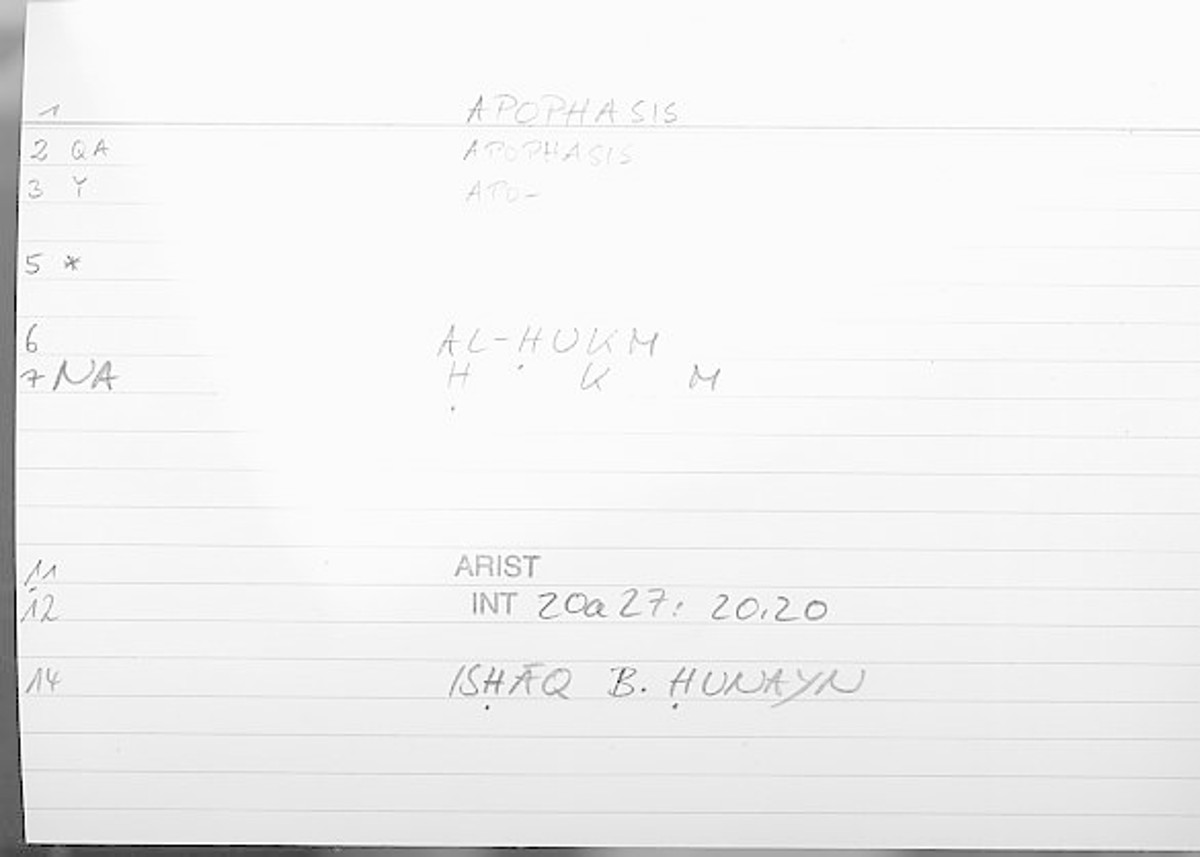 1 APOPHASIS
2 QA APOPHASIS
3 Y APO-
5 *
6 AL-ḤUKM
7 NA Ḥ K M
11 ARIST
12 INT 20a27: 20.20
14 ISḤĀQ B. ḤUNAYN